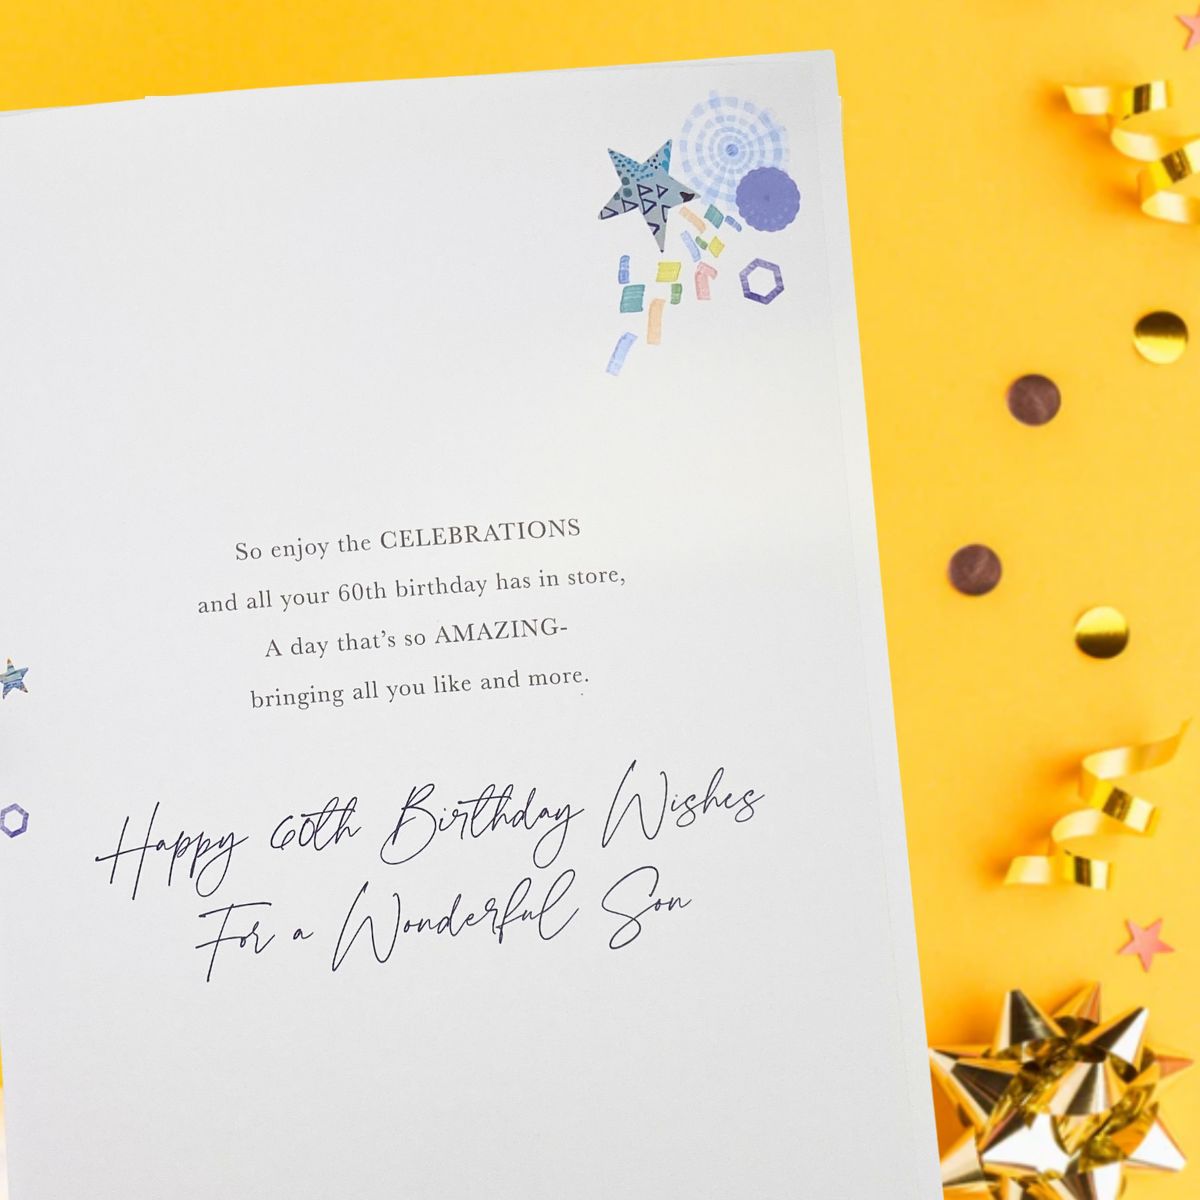 So enjoy the CELEBRATIONS
and all your 60th birthday has in store,
A day that's so AMAZING-
bringing all you like and more.
Happy 60th Birthday Wishes
For a Wonderful Son